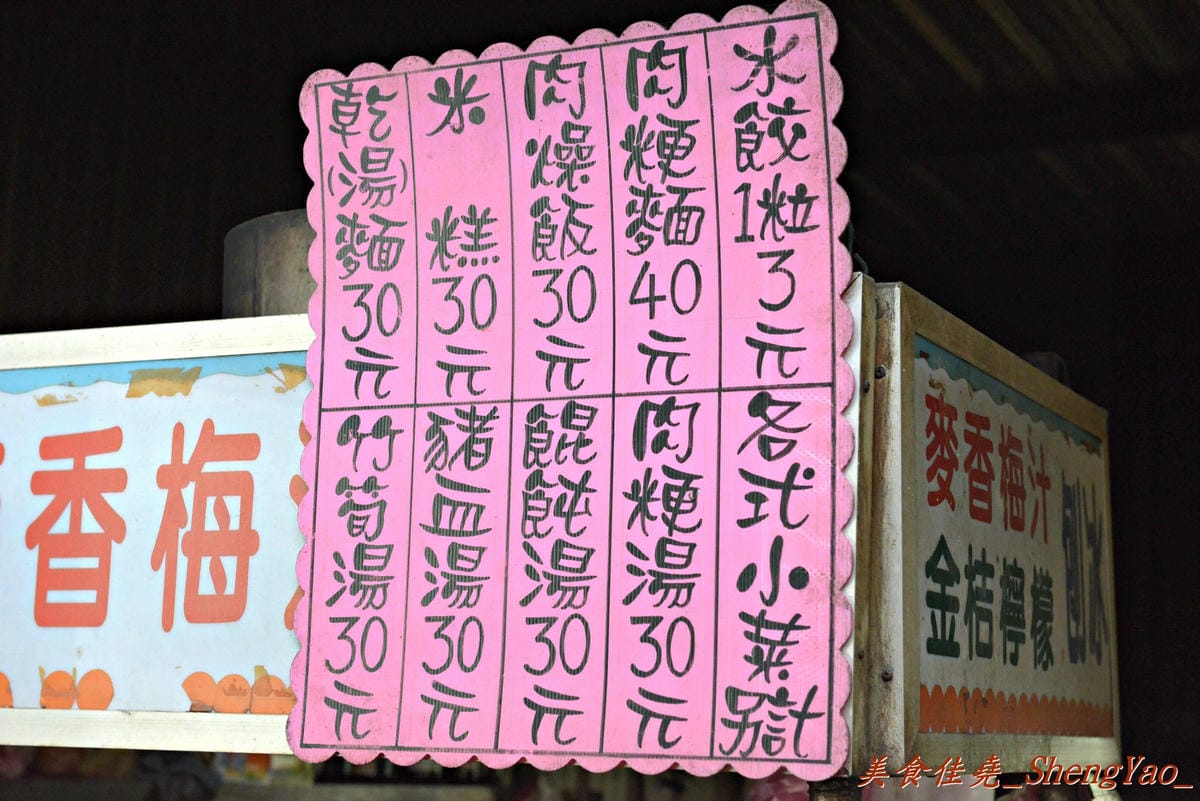 水餃1粒3元
肉粳麵40元
肉燥飯30元
米糕30元
乾(湯)麵30元
各式小菜另計
肉粳湯30元
餛飩湯30元
豬血湯30元
竹筍湯30元
香梅
麥香梅汁
金桔檸檬
刨冰
美食佳堯_ShengYao_